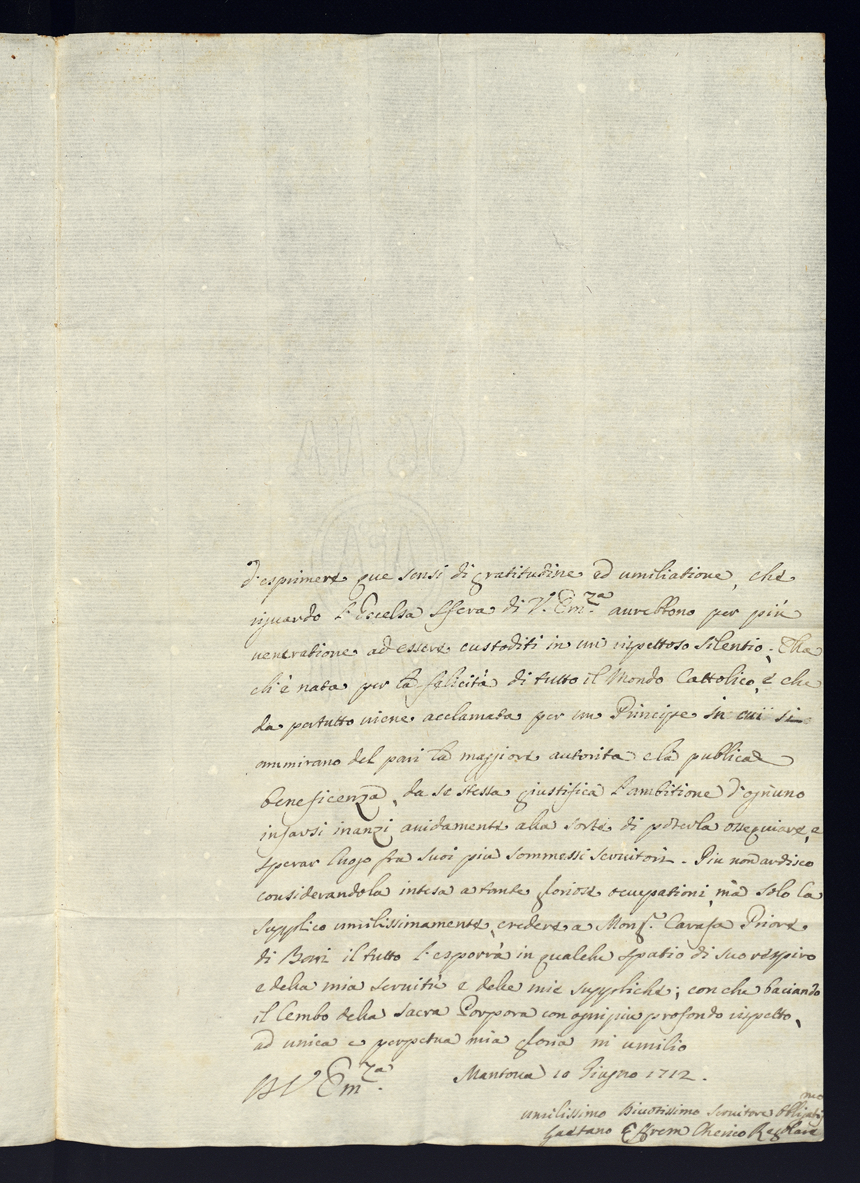 d'esprimere que sensi di gratitudine ed umiliatione, che
riguardo l'Eccelsa Sfera di V. Em.za aurebbono per più
veneratione ad essere custoditi in un rispettoso silentio. Ella
ch'è nata per la felicità di tutto il Mondo Cattolico, e che
da pertutto viene acclamata per un Principe in cui si
ammirano del pari la maggiore autorità e la publica
beneficenza, da se stessa giustifica l'ambitione d'ognuno
in farsi inanzi avidamente alla sorte di poterla ossequiare, e
sperar luogo fra suoi più sommessi servitori. Più non ardisco
considerandola intesa a tante gloriose ocupationi, mà solo la
supplico umilissimamente, credere a Mons.r Carafa Priore
di Bari il tutto l'esporrà in qualche spatio di suo respiro
e della mia servitù e delle mie suppliche; con che baciando
il lembo della Sacra Porpora con ogni più profondo rispetto,
ad unica e perpetua mia gloria mi umilio
D V Em.za Mantova 10 Giugno 1712.
umilissimo Divotissimo Servitore obligatis.mo
Gaetano Effrem Cherico Regolare